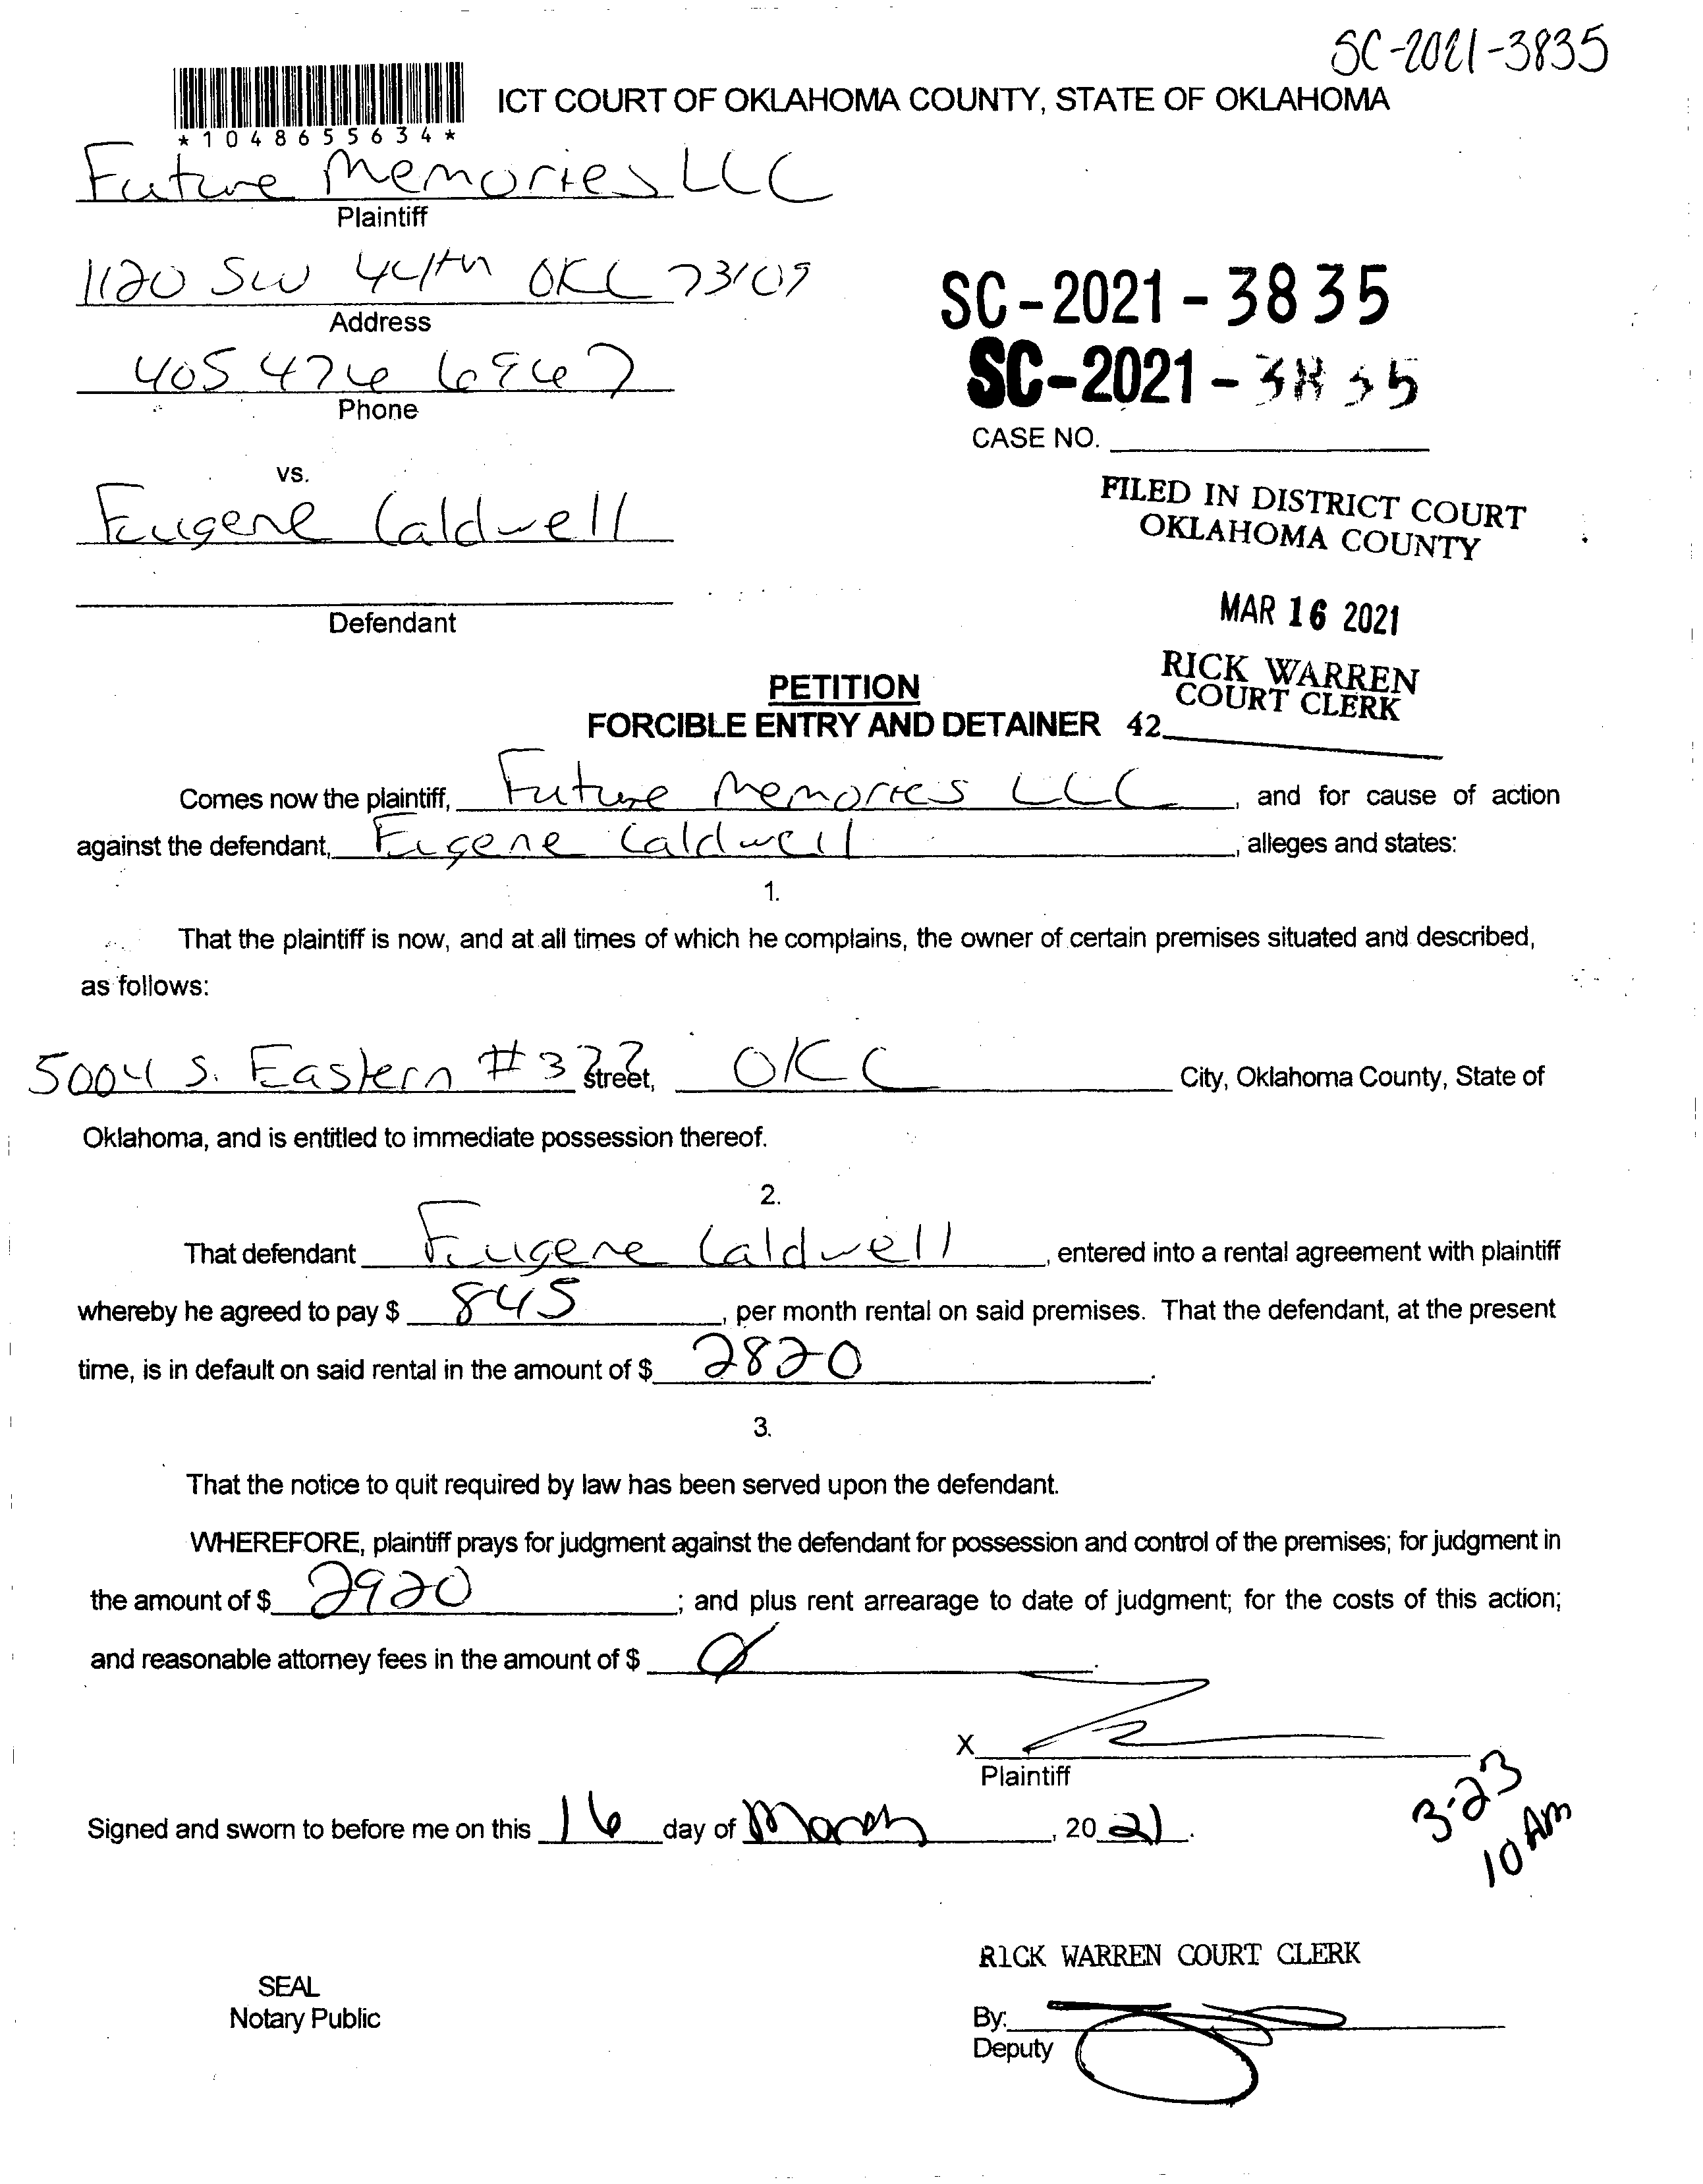 SC-2021-3835
ICT COURT OF OKLAHOMA COUNTY, STATE OF OKLAHOMA
*1048655634*
Future Memories LLC
Plaintiff
1120 SW 44th OKC 73109
Address
405 474 6967
Phone
SC-2021-3835
SC-2021-3835
CASE NO.
vs.
Eugene Caldwell
Defendant
FILED IN DISTRICT COURT
OKLAHOMA COUNTY
MAR 16 2021
RICK WARREN
COURT CLERK
42
PETITION
FORCIBLE ENTRY AND DETAINER
Comes now the plaintiff, Future Memories LLC, and for cause of action
against the defendant, Eugene Caldwell, alleges and states:
1.
That the plaintiff is now, and at all times of which he complains, the owner of certain premises situated and described,
as follows:
5004 S. Eastern #377 street, OKC City, Oklahoma County, State of
Oklahoma, and is entitled to immediate possession thereof.
2.
That defendant Eugene Caldwell, entered into a rental agreement with plaintiff
whereby he agreed to pay $ 845, per month rental on said premises. That the defendant, at the present
time, is in default on said rental in the amount of $ 2820.
3.
That the notice to quit required by law has been served upon the defendant.
WHEREFORE, plaintiff prays for judgment against the defendant for possession and control of the premises; for judgment in
the amount of $ 2920; and plus rent arrearage to date of judgment; for the costs of this action;
and reasonable attorney fees in the amount of $ 0.
X
Plaintiff
Signed and sworn to before me on this 16 day of March, 2021.
3-23
10 AM
RICK WARREN COURT CLERK
SEAL
Notary Public
By:
Deputy